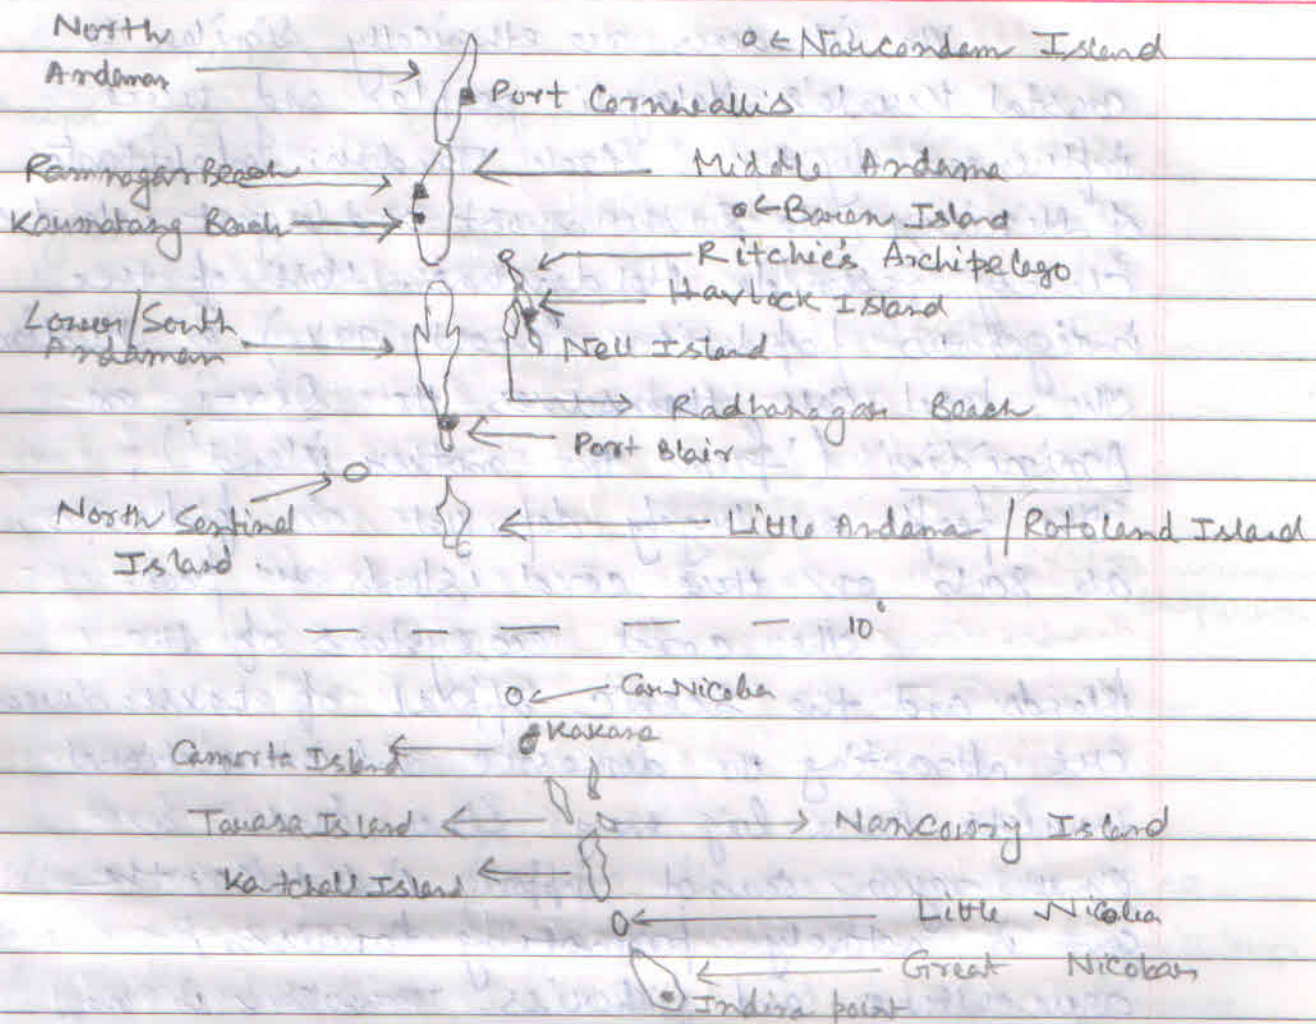 North
Andaman
Narcondam Island
Port Cornwallis
Middle Andama
Ramnagar Beach
Baren Island
Kaumatang Beach
Ritchie's Archipelago
Havlock Island
Lower/South
Andaman
Nell Island
Radhanagar Beach
Port Blair
North Sentinel
Island
Little Andama / Rotoland Island
10°
Car Nicoba
Kakana
Camorta Island
Tarasa Island
Nancowry Island
Katchall Island
Little Nicoba
Great Nicobar
Indira point